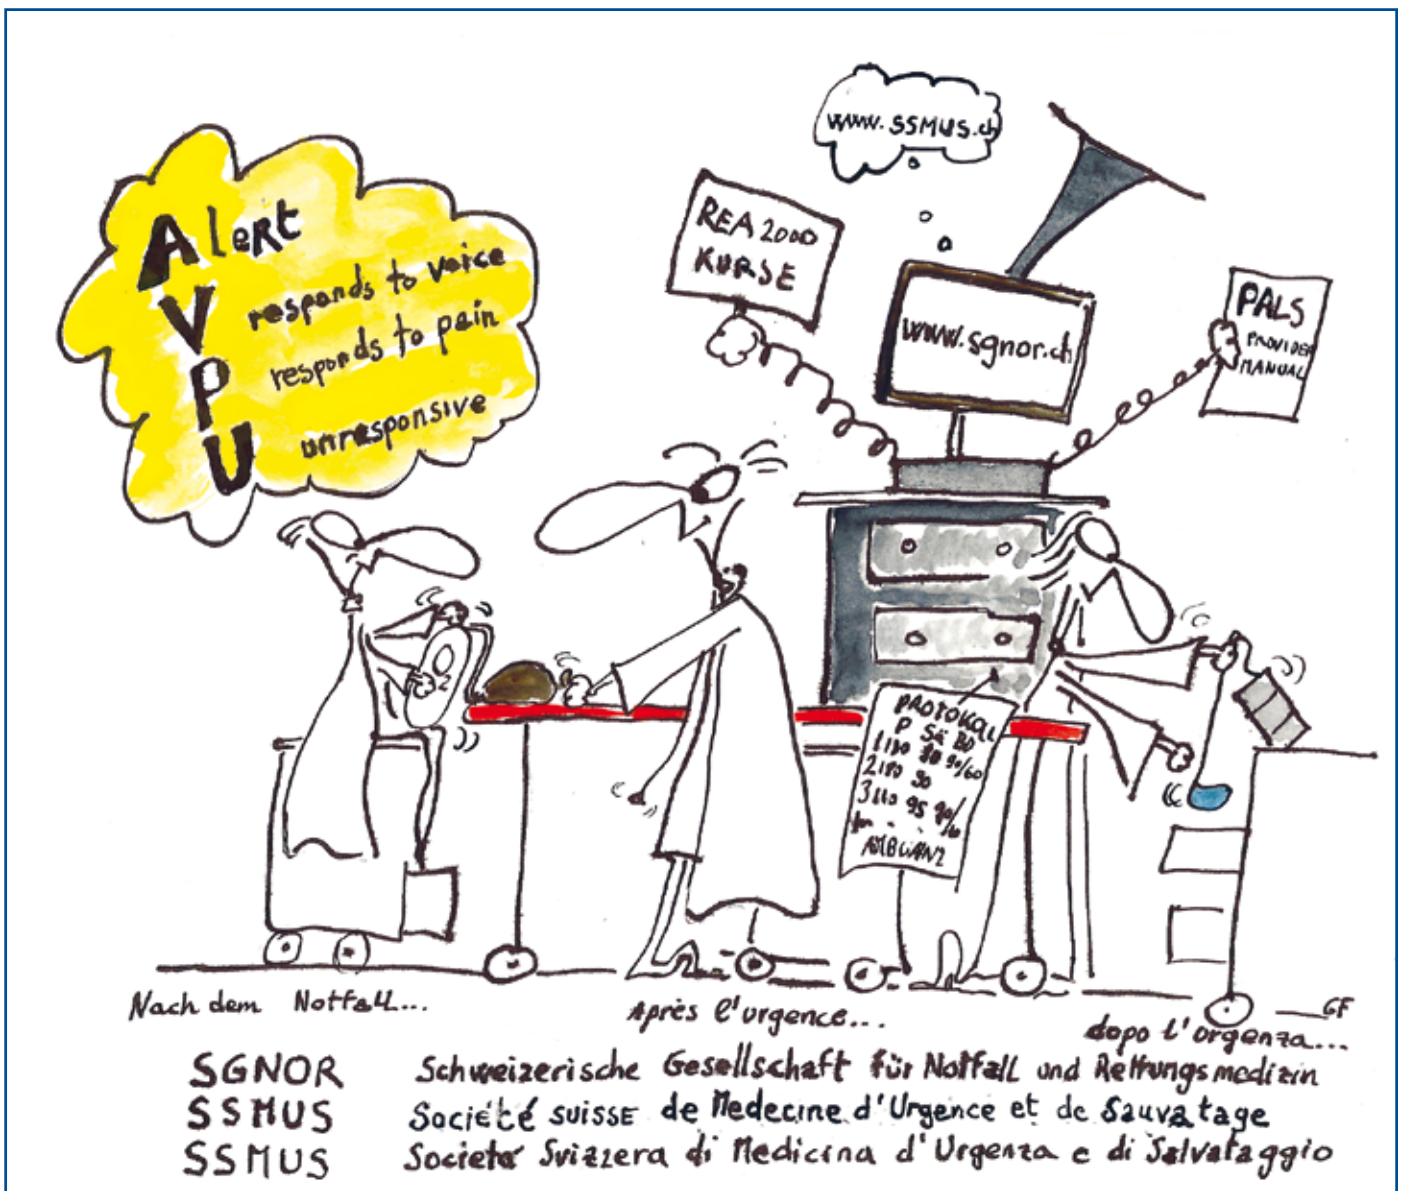 www.ssmus.ch
Alert
V responds to voice
P responds to pain
U unresponsive
REA 2000
KURSE
www.sgnor.ch
PALS
PROVIDER
MANUAL
O2
PROTOKOLL
P Sä BD
1 180 80 90/60
2 180 90
3 160 95 90/
Nach dem Notfall...
Après l'urgence...
dopo l'orgenza...
GF
SGNOR Schweizerische Gesellschaft für Notfall und Rettungsmedizin
SSMUS Société suisse de Medecine d'Urgence et de Sauvatage
SSMUS Societa Svizzera di Medicina d'Urgenza e di Salvataggio